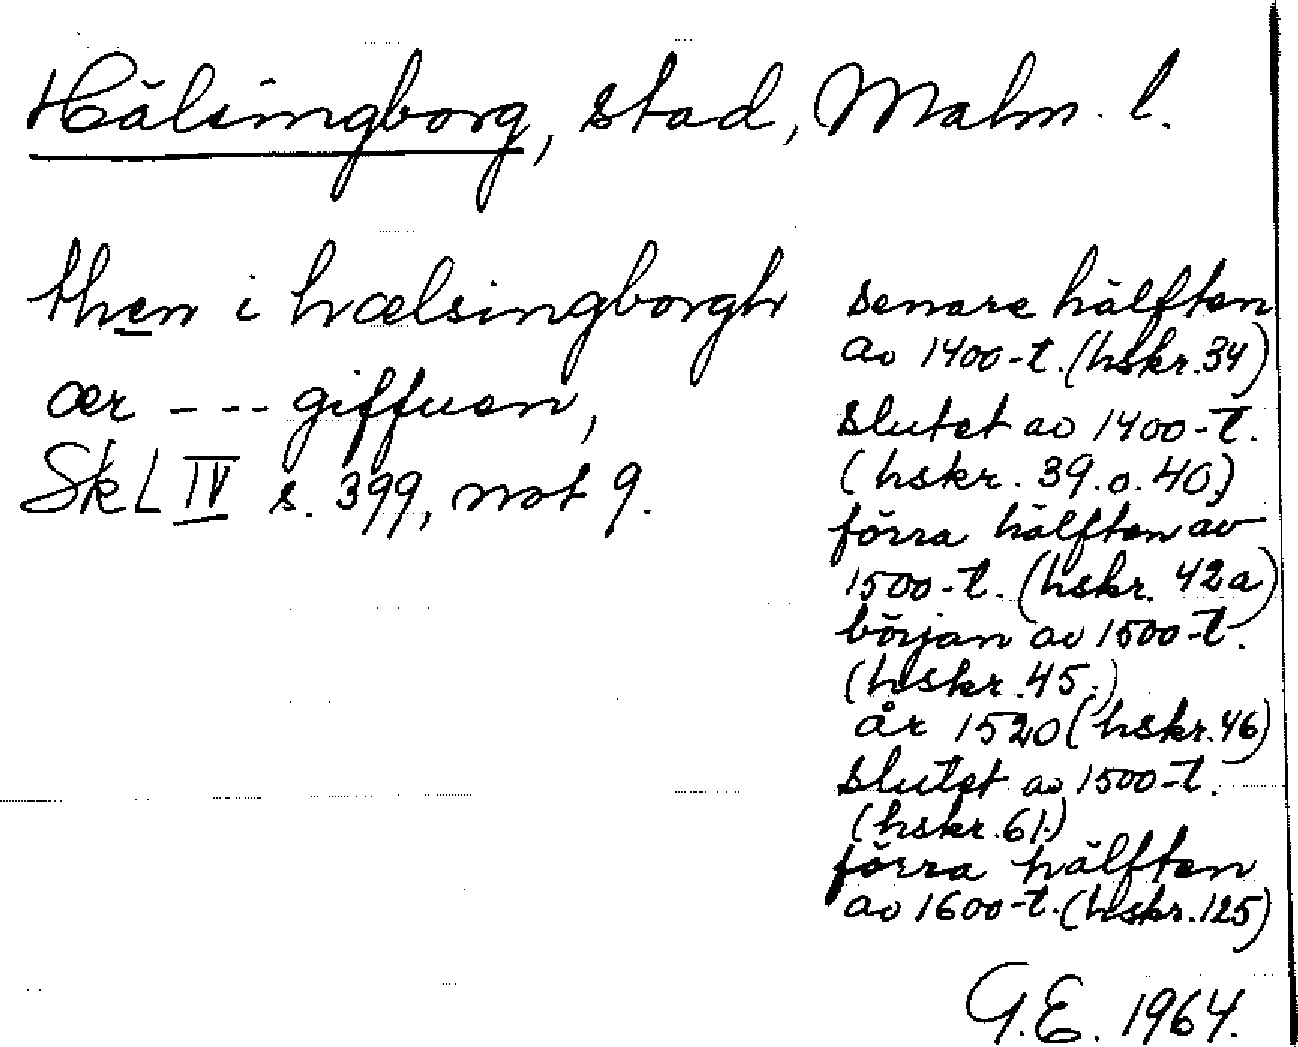 Hälsingborg, stad, Malm. l.
then i hælsingborgh
ær --- giffuen,
SkL IV s. 399, not 9.
senare hälften
av 1400-t. (hskr. 34)
slutet av 1400-t.
(hskr. 39. o. 40.)
förra hälften av
1500-t. (hskr. 42a)
början av 1500-t.
(hskr. 45.)
år 1520 (hskr. 46)
slutet av 1500-t.
(hskr. 61.)
förra hälften
av 1600-t. (hskr. 125)
G.E. 1964.